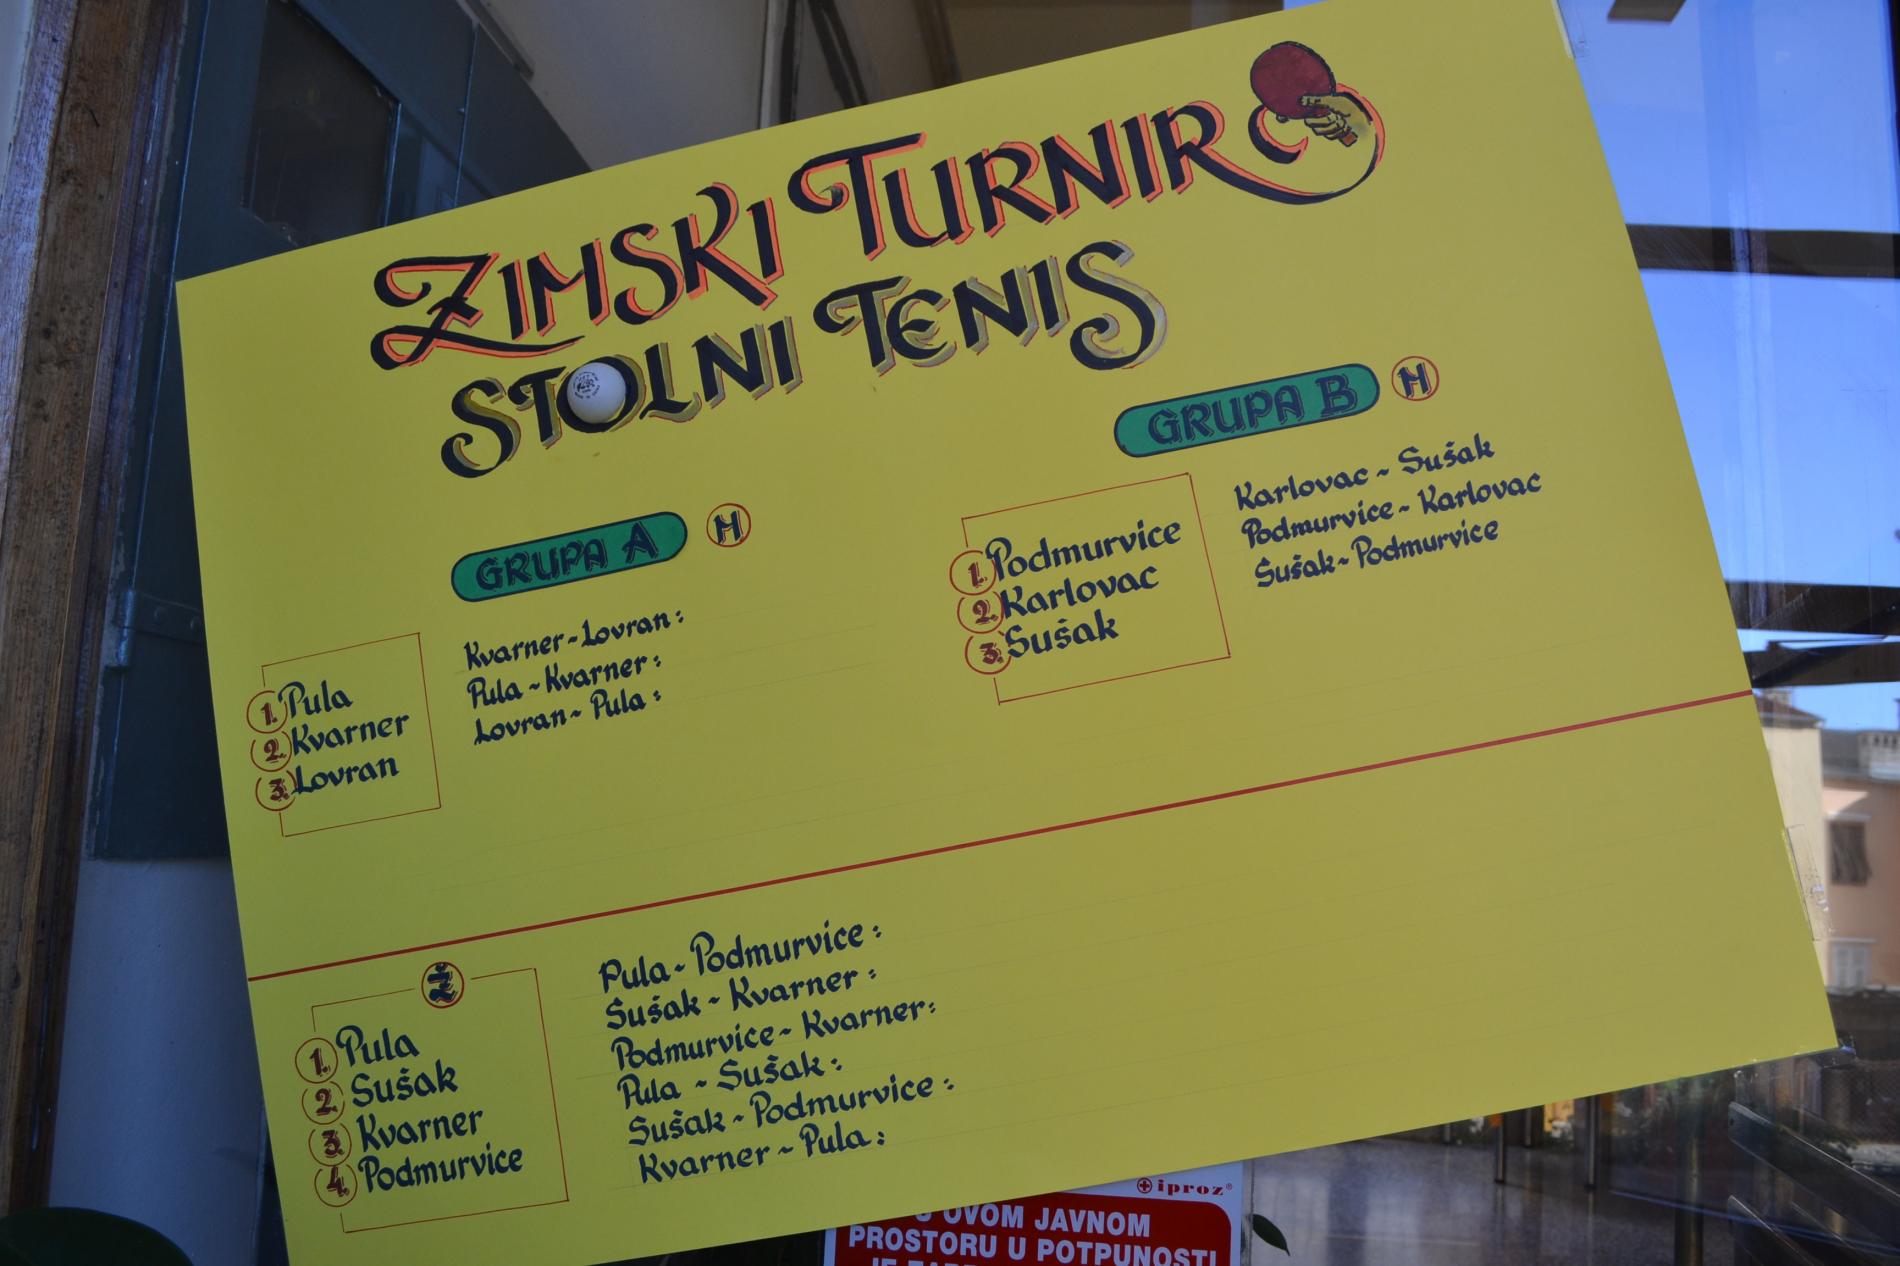 ZIMSKI TURNIR
STOLNI TENIS
GRUPA A M
1. Pula
2. Kvarner
3. Lovran
Kvarner-Lovran:
Pula-Kvarner:
Lovran-Pula:
GRUPA B M
1. Podmurvice
2. Karlovac
3. Sušak
Karlovac-Sušak
Podmurvice-Karlovac
Sušak-Podmurvice
Ž
1. Pula
2. Sušak
3. Kvarner
4. Podmurvice
Pula-Podmurvice:
Sušak-Kvarner:
Podmurvice-Kvarner:
Pula-Sušak:
Sušak-Podmurvice:
Kvarner-Pula:
iproz®
U OVOM JAVNOM
PROSTORU U POTPUNOSTI